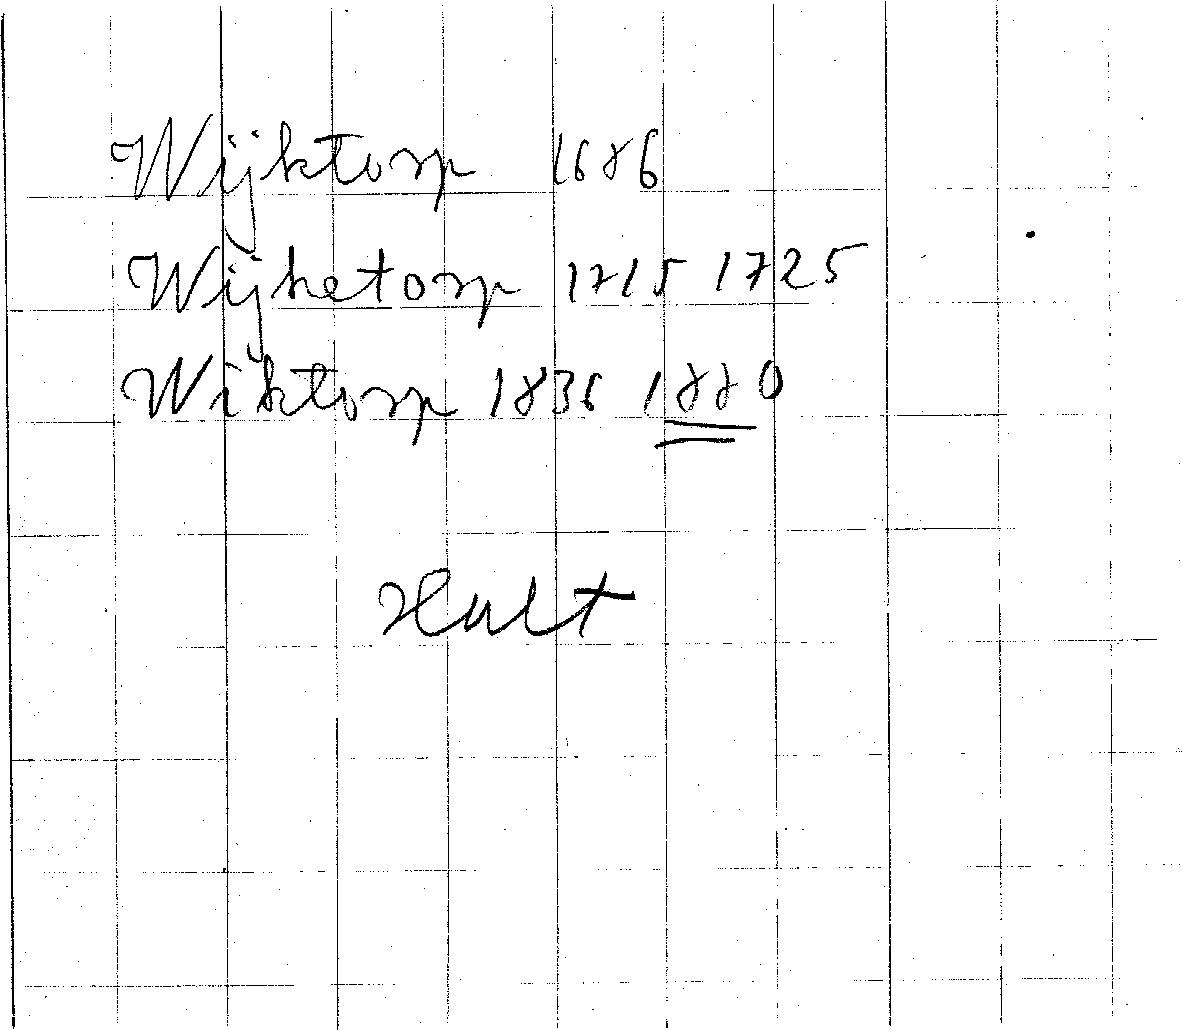 Wijktorp 1686
Wijketorp 1715 1725
Wiktorp 1836 1880
Hult